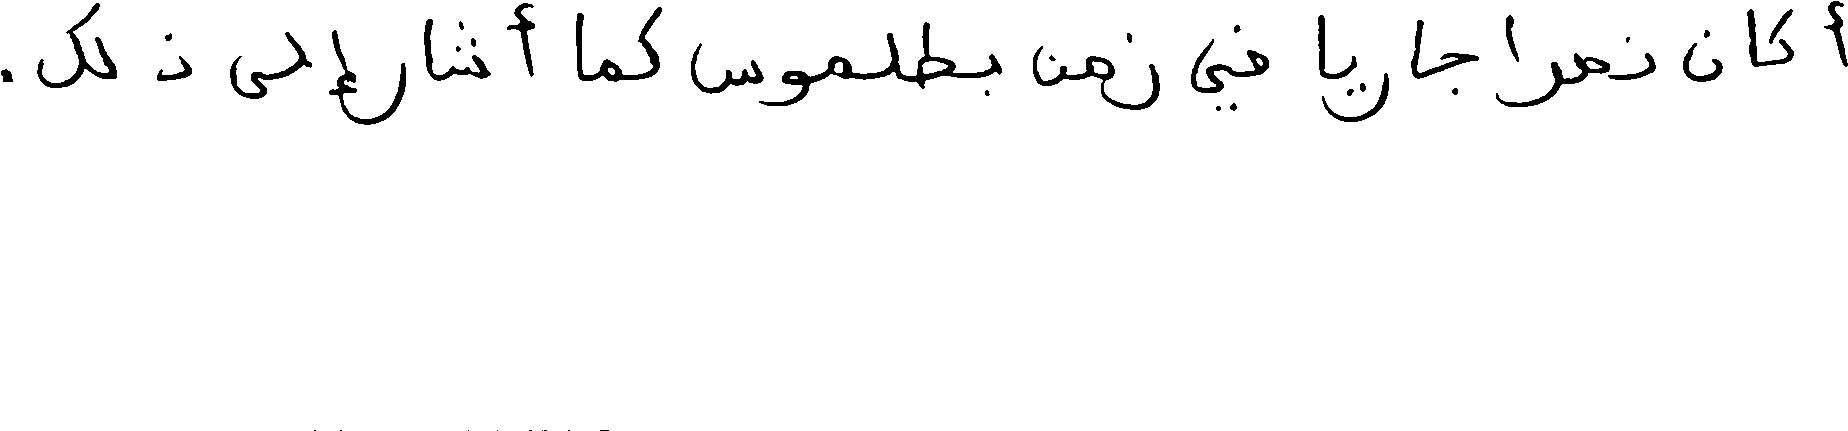 أكان نهرا جاريا في زمن بطلموس كما أشار إلى ذلك.